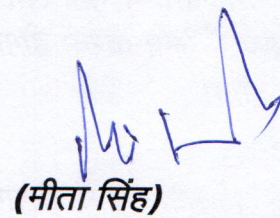 (मीता सिंह)